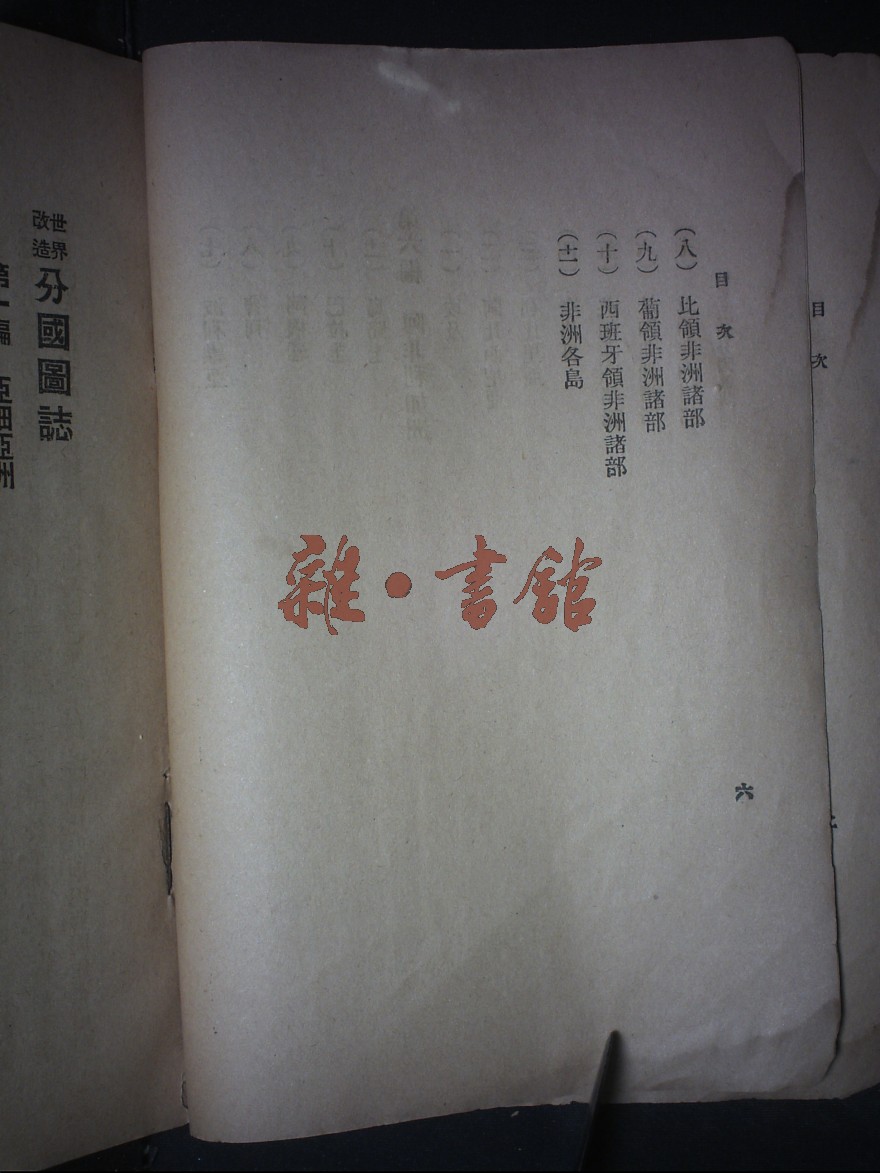 目次
目次
六
(八) 比領非洲諸部
(九) 葡領非洲諸部
(十) 西班牙領非洲諸部
(十一) 非洲各島
雜·書館
世界改造分國圖誌
第一編 亞細亞洲